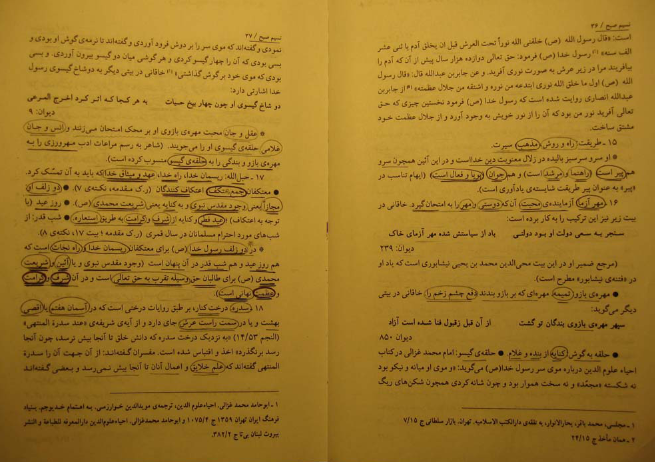 نسیم صبح / ۳۶
است: «قال رسول الله (ص) خلقنی الله نوراً تحت العرش قبل ان یخلق آدم با ثنی عشر
الف سنه» (۱) رسول خدا (ص) فرمود: حق تعالی دوازده هزار سال پیش از آن که آدم را
بیافریند مرا در زیر عرش به صورت نوری آفرید. و عن جابربن عبدالله قال: «قال رسول
الله (ص) اول ما خلق الله نوری ابتدعه من نوره و اشتقه من جلال عظمته» (۲) از جابربن
عبدالله انصاری روایت شده است که رسول خدا (ص) فرمود نخستین چیزی که حق
تعالی آفرید نور من بود که آن را از نور خویش به وجود آورد و از جلال عظمت خود
مشتق ساخت.
۱۵ ـ طریقت: راه و روش، مذهب، سیرت.
● او سرو سرسبز بالیده در زلال معنویت دین خداست و در این آئین همچون سرو
هم پیر است (راهنما و مرشد است) و هم جوان (پویا و فعال است) (ایهام تناسب در
«پیر» به عنوان پیر طریقت شایسته‌ی یادآوری است).
۱۶ ـ مهر آزما: آزماینده‌ی محبت، آن که دوستی و مهر را به امتحان گیرد. خاقانی در
بیت زیر نیز این ترکیب را به کار برده است:
سنجر به سعی دولت او بود دولتی یاد از سیاستش شده مهر آزمای خاک
دیوان: ۲۳۹
(مرجع ضمیر او در این بیت محی‌الدین محمد بن یحیی نیشابوری است که یاد او
در «فتنه‌ی نیشابور» مطرح است).
● مهره‌ی بازو: تمیمه، مهره‌ای که بر بازو بندند (دفع چشم زخم را) خاقانی در بیتی
دیگر می‌گوید:
سپهر مهره‌ی بازوی بندگان تو گشت از آن قبل زقبول فنا شده است آزاد
دیوان: ۸۵۰
● حلقه به گوش: کنایه از بنده و غلام ● حلقه‌ی گیسو: امام محمد غزالی در کتاب
احیاء علوم الدین درباره موی سر رسول خدا (ص) می‌گوید: «و موی او میانه و نیکو بود
نه شکسته «مجعّد» و نه سخت هموار بود و چون شانه کردی همچون شکن‌های ریگ
۱ ـ مجلسی، محمد باقر، بحارالانوار، به نقله‌ی دارالکتب الاسلامیه، تهران، بازار سلطانی ج ۷/۱۵
۲ ـ همان مأخذ ج ۲۴/۱۵
نسیم صبح / ۳۷
نمودی و گفته‌اند که موی سر را بر دوش فرود آوردی و گفته‌اند تا نرمه‌ی گوش او بودی و
بسی بودی که آن را چهار گیسو کردی و هر گوشی میان دو گیسو بیرون آوردی. و بسی
بودی که موی خود بر گوش گذاشتی» (۱) خاقانی در بیتی دیگر به دو شاخ گیسوی رسول
خدا اشارتی دارد:
دو شاخ گیسوی او چون چهار بیخ حیات به هر کجا که اثر کرد اخرج المرعی
دیوان: ۹
● عقل و جان محبت مهره‌ی بازوی او بر محک امتحان می‌زنند و انس و جان
غلامی حلقه‌ی گیسوی او را می‌جویند. (شاعر به رسم مراعات ادب مهرورزی را به
مهره‌ی بازو و بندگی را به حلقه‌ی گیسو منسوب کرده است).
۱۷ ـ حبل‌الله: ریسمان خدا، راه خدا، عهد و میثاق خدا که باید به آن تمسّک کرد.
● معتکفان: جمع معتکف، اعتکاف کنندگان (ر.ک مقدمه، نکته‌ی ۷). ● دو زلف او:
مجازاً یعنی وجود مقدس نبوی و به کنایه یعنی شریعت محمدی (ص). ● روز عید (با
توجه به اعتکاف): عید فطر و کنایه از شرف و کرامت به طریق استعاره. ● شب قدر: از
شب‌های مورد احترام مسلمانان در سال قمری (ر.ک مقدمه؛ بیت ۱۷، نکته‌ی ۸)
● در دو زلف رسول خدا (ص) برای معتکفان ریسمان خدا و راه نجات است که
هم روز عید و هم شب قدر در آن پنهان است (وجود مقدس نبوی و یا آئین و شریعت
محمدی (ص) برای طالبان حق وسیله تقرب به حق تعالی است و در آن شرف و کرامت
و عظمت نهانی است).
۱۸ ـ سدره: درخت کنار، بر طبق روایات درختی است که در آسمان هفتم یا اقصی
بهشت و یا در سمت راست عرش جای دارد و از آیه‌ی شریفه‌ی «عند سدرة المنتهی»
(النجم ۱۴/۵۳) «به نزدیک درخت سدره که دانش خلق تا آنجا بیش نرسد، چون آنجا
رسد برنگذرد» اخذ و اقتباس شده است. مفسران گفته‌اند: از آن جهت آن را سدرة
المنتهی گفته‌اند که علم خلایق و اعمال آنان تا آنجا بیش نمی‌رسد و بعضی گفته‌اند
۱ ـ ابوحامد محمد غزالی، احیاء علوم الدین، ترجمه‌ی مویدالدین خوارزمی، به اهتمام خدیوجم، بنیاد
فرهنگ ایران تهران ۱۳۵۹ ج ۱۰۷۵/۲ و ابوحامد محمدغزالی، احیاءعلوم‌الدین دارالمعرفه للطباعة و النشر
بیروت لبنان بی‌تا ج ۳۸۲/۲.